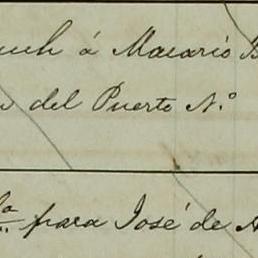 á Macario
del Puerto N.º
para José de